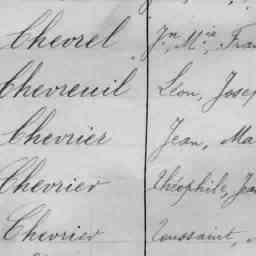 Chevrel Jn, Mie, Fran
Chevreuil Léon, Josep
Chevrier Jean, Ma
Chevrier Théophile, Jea
Chevrier Toussaint,